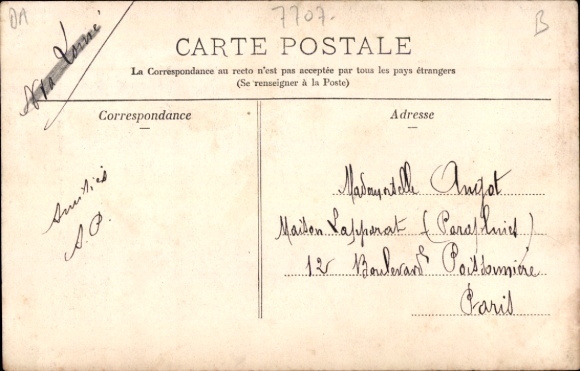 DA
7707.
B
Via Lomé
CARTE POSTALE
La Correspondance au recto n'est pas acceptée par tous les pays étrangers
(Se renseigner à la Poste)
Correspondance
Amitiés
S. P.
Adresse
Mademoiselle Angot
Maison Lapparat (Parapluies)
12 Boulevard Poissonnière
Paris